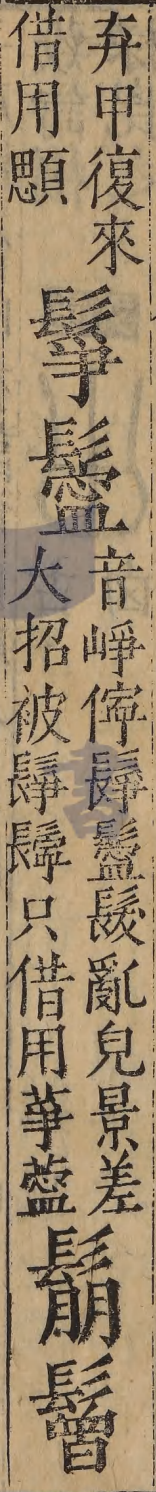 弃甲復來
借用顋
鬇鬡
音崢儜鬇鬡髮亂皃景差
大招被鬇鬡只借用薴
鬅鬙